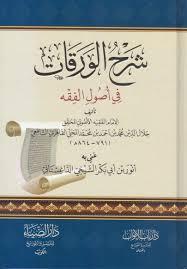 شرح الورقات
في أصول الفقه
تأليف
الإمام الفقيه الأصولي المحقق
جلال الدين محمد بن أحمد بن محمد المحلي القاهري الشافعي
(٧٩١-٨٦٤هـ)
عني به
أنور بن أبي بكر الشيخي الداغستاني
دار الضياء